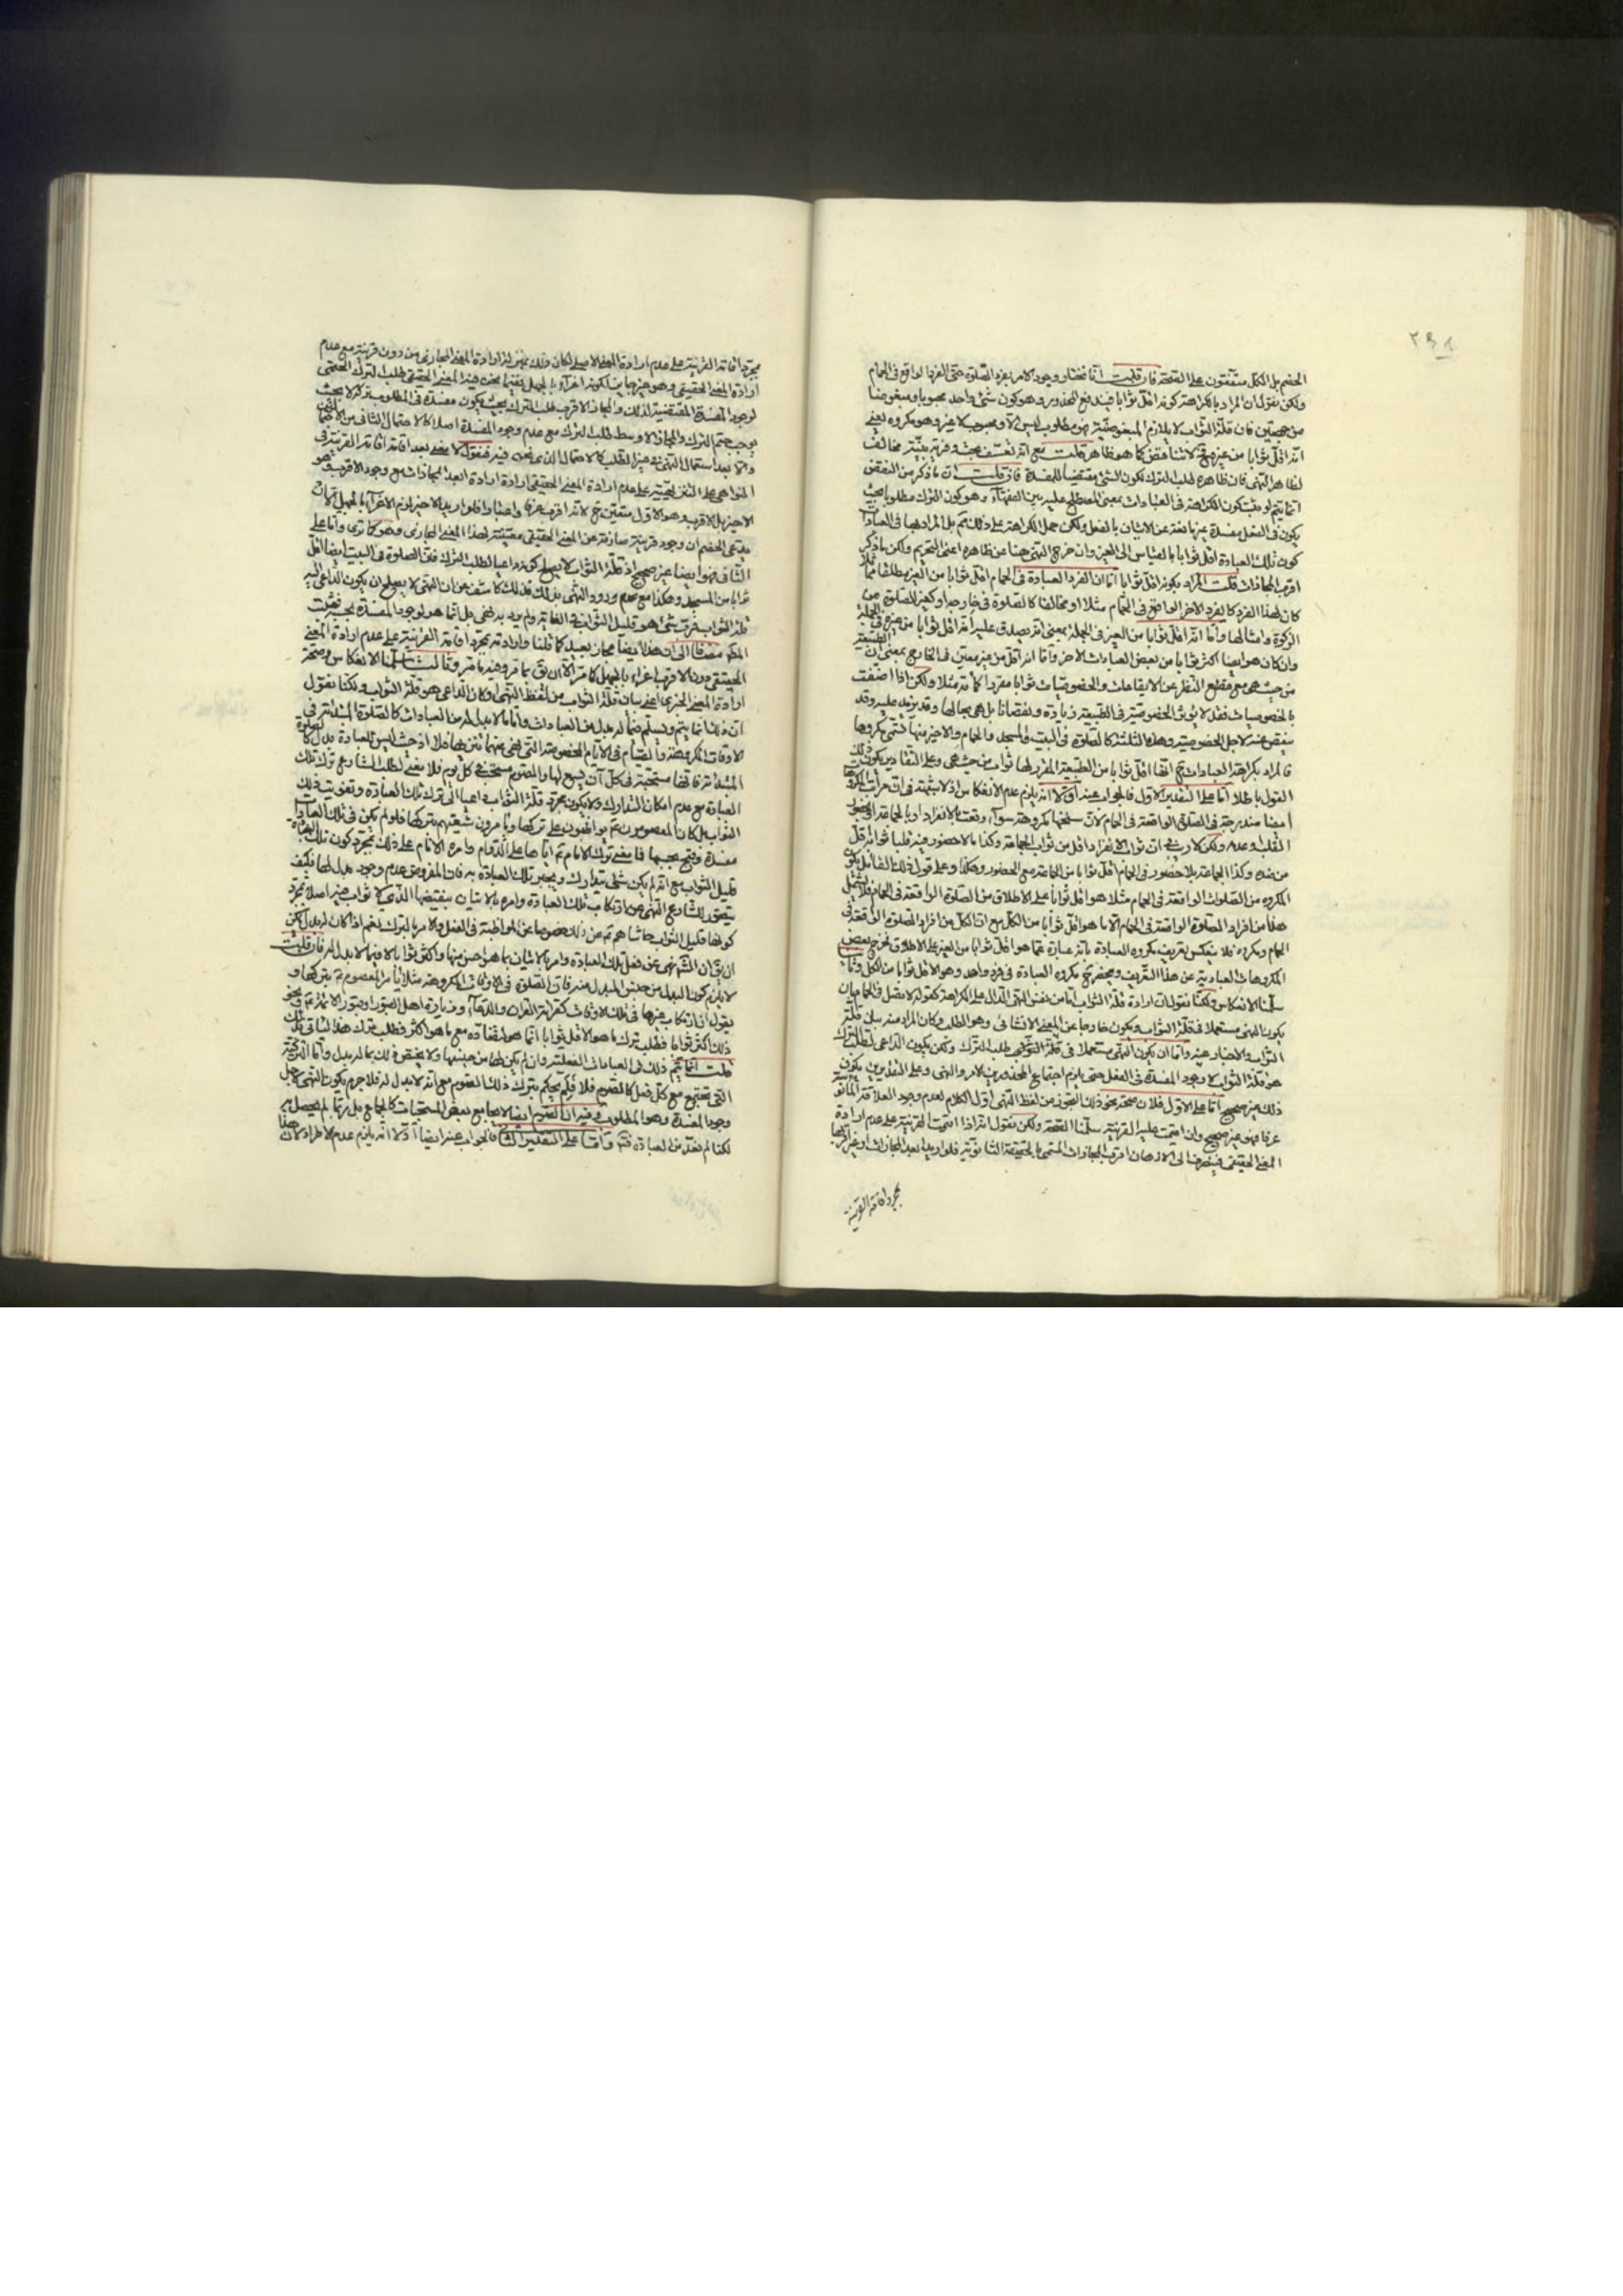 ٢٩٨
الخصم بل الكل متفقون على الصحة فان قلت انا نختار وجود الامر بفرد الصلوة حتى الفرد الواقع في الحمام
ولكن نقول ان المراد بالكراهة كونه اقل ثوابا فيندفع المحذور وهو كون شئ واحد محبوبا ومبغوضا
من جهتين فان قلة الثواب لا يلازم المبغوضية
انه اقل ثوابا من غيره كما هو ظاهر قلت مع انه تعسف بحت وقرينة مخالف
لظاهر النهى فان ظاهره طلب الترك لكون الشئ مقتضيا للمفسدة فان قلت ان ما ذكر من النقض
انما يتم لو ثبت كون الكراهة في العبادات بمعنى المصطلح عليه بين الفقهاء وهو كون الترك مطلوبا بحيث
يكون في الفعل مفسدة غير مانعة عن الاتيان بالفعل ولكن حمل الكراهة على ذلك بل المراد بها في العبادات
كون تلك العبادة اقل ثوابا بالقياس الى الغير وان خرج النهى هنا عن ظاهره اعنى التحريم ولكن ما ذكر
اقرب المجازات قلت المراد بكونه اقل ثوابا اما ان الفرد العبادة في الحمام اقل ثوابا من الغير مطلقا
كان لهذا الفرد كالفرد الاخر الواقع في الحمام مثلا او مخالفا كالصلوة في خارجه او كغير الصلوة من
الزكوة وامثالها واما انه اقل ثوابا من الغير في الجملة بمعنى انه يصدق عليه انه اقل ثوابا من غيره في الجملة
وان كان هو ايضا اكثر ثوابا من بعض العبادات الاخر واما انه اقل من غير معين في الخارج بمعنى ان الطبيعة
من حيث هي مع قطع النظر عن الايقاعات والخصوصيات ثوابا مقررا كمائة مثلا ولكن اذا اضيفت
بالخصوصيات فقد لا يؤثر الخصوصية في الطبيعة زيادة ونقصانا بل هي بحالها وقد يزيد عليه وقد
ينقص عنه لاجل الخصوصية وهذه الثلثة كالصلوة في البيت والمسجد والحمام والاخير منها تسمى مكروها
فالمراد بكراهة العبادات ح انها اقل ثوابا من الطبيعة المقرر لها ثواب من حيث هي وعلى التقادير يكون ذلك
القول باطلا اما على التقدير الاول فالجواب عنه اولا انه يلزم عدم الانعكاس اذ لا شبهة في ان
ايضا مندرجة في الصلوة الواقعة في الحمام لان سنخها مكروهة سواء وقعت بالانفراد او بالجماعة
القلب وعدمه ولكن لا ريب في ان ثواب الانفراد اقل من ثواب الجماعة وكذا ما لا حضور فيه قلبا ثوابه اقل
من ضده وكذا الجماعة بلا حضور في الحمام اقل ثوابا من الجماعة مع الحضور وهكذا وعلى قول ذلك القائل يكون
المكروه من الصلوات الواقعة في الحمام مثلا هو اقل ثوابا على الاطلاق من الصلوة الواقعة في الحمام فلا يشمل
هذا من افراد الصلوة الواقعة في الحمام الا ما هو اقل ثوابا من الكل مع ان الكل من افراد الصلوة الواقعة في
الحمام ومكروه فلا ينعكس تعريف مكروه العبادة بانه عبارة عما هو اقل ثوابا من الغير على الاطلاق لخروج بعض
المكروهات العبادية عن هذا التعريف وينحصر ح مكروه العبادة في فرد واحد وهو الاقل ثوابا من الكل وثانيا
سلمنا الانعكاس ولكنا نقول ان ارادة قلة الثواب اما من نفس النهى الدال على الكراهة كقوله لا تصل في الحمام بان
يكون النهى مستعملا في قلة الثواب ويكون خارجا عن المعنى الانشائى وهو الطلب وكان المراد منه بيان قلة
الثواب والاخبار عنه واما ان يكون النهى مستعملا في طلب الترك ولكن يكون الداعى لطلب الترك
هو قلة الثواب لا وجود المفسدة في الفعل حتى يلزم اجتماع المحذورين الامر والنهى وعلى التقديرين يكون
ذلك غير صحيح اما على الاول فلان صحة نحو ذلك التجوز من لفظ النهى اول الكلام لعدم وجود العلاقة
عرفا فهو غير صحيح وان اقيمت عليه القرينة سلمنا الصحة ولكن نقول انه اذا اقيمت القرينة على عدم ارادة
المعنى الحقيقى فينصرف الى الاذهان اقرب المجازات المسمى بالحقيقة الثانوية فلو اريد ابعد المجازات
مجرد اقامة القرينة
مجرد اقامة القرينة على عدم ارادة المعنى الاصلى لكان ذلك بمنزلة ارادة المعنى المجازى من دون قرينة مع عدم
ارادة المعنى الحقيقى وهو غير جايز لكونه اغراء بالجهل ففيما نحن فيه المعنى الحقيقى طلب الترك الحتمى
لوجود المفسدة المقتضية لذلك والمجاز الاقرب طلب الترك بحيث يكون مفسدة في المطلوب تركه لا بحيث
يوجب حتم الترك والمجاز الاوسط طلب الترك مع عدم وجود المفسدة اصلا كالاحتمال الثانى من
والابعد استعمال النهى في غير الطلب كالاحتمال الذى نحن فيه فنقول لا معنى بعد اقامة القرينة في
النواهى على عدم ارادة المعنى الحقيقى ارادة ابعد المجازات مع وجود الاقرب
الاخير بل الاقرب وهو الاول متعين ح لانه اقرب عرفا واعتبارا فلو اريد الاخير لزم الاغراء بالجهل
يدعى الخصم ان وجود قرينة صارفة عن المعنى الحقيقى معينة لهذا المعنى المجازى وهو كما ترى واما على
الثانى فهو ايضا غير صحيح اذ قلة الثواب لا يصلح كونه داعيا لطلب الترك فان الصلوة في البيت ايضا اقل
ثوابا من المسجد وهكذا مع عدم ورود النهى بذلك فذلك كاشف عن ان النهى لا يصلح ان يكون الداعى اليه
قلة الثواب فرب شئ هو قليل الثواب في الغاية ولم يرد به نهى بل انما هو لوجود المفسدة
مضافا الى ان هذا ايضا مجاز بعيد كما قلنا وارادته بمجرد اقامة القرينة على عدم ارادة المعنى
الحقيقى دون الاقرب اغراء بالجهل كما مر الا ان يق بما مر وفيه ما مر وثالثا سلمنا الانعكاس وصحة
ارادة المعنى الخبرى اعنى بيان قلة الثواب من لفظ النهى او كان الداعى هو قلة الثواب ولكنا نقول
ان ذلك انما يتم ويسلم فيما له بدل من العبادات واما ما لا بدل له من العبادات كالصلوة المبتدئة في
الاوقات المكروهة والصيام في الايام المخصوصة التى نهى عنهما تنزيها فلا اذ حيث ليس للعبادة بدل كالصلوة
المبتدئة فانها مستحبة في كل آن يسع لها والصوم مستحب في كل يوم فلا معنى لطلب الشارع ترك تلك
العبادة مع عدم امكان التدارك ولا يكون مجرد قلة الثواب داعيا الى ترك تلك العبادة وتفويت ذلك
الثواب بل كان المعصومون عم يواظبون على تركها ويأمرون شيعتهم بتركها فلو لم يكن في تلك العبادات
مفسدة وقبح بحسبها فما معنى ترك الامام عم اياها على الدوام وامره الانام على ذلك بمجرد كون تلك العبادة
قليل الثواب مع انه لم يكن شئ يتدارك ويجبر تلك العبادة به فات المفروض عدم وجود بدل لها فكيف
يتصور للشارع النهى عن ارتكاب تلك العبادة وامره بالاتيان بنقيضها الذى لا ثواب فيه اصلا بمجرد
كونها قليل الثواب حاشاهم ثم عن ذلك خصوصا عن المواظبة في الفعل والامر بالترك نعم اذا كان له بدل امكن
ان يق ان الشارع نهى عن فعل تلك العبادة وامر بالاتيان بما هو احسن منها واكثر ثوابا لا فيما لا بدل له فان قلت
لا يلزم كون البدل من جنس المبدل منه فان الصلوة في الاوقات المكروهة مثلا يأمر المعصوم ثم بتركها و
يقول ان ارتكاب غيرها في تلك الاوقات كقرائة القران والدعاء وزيارة اهل القبور ونحو
ذلك اكثر ثوابا فطلب ترك ما هو الاقل ثوابا انما هو
قلت انما يتم ذلك في العبادات الفعلية وان لم يكن لها من جنسها ولا يختص ذلك بما له بدل واما التركية
التى تجتمع مع كل فعل كالصوم فلا فلم يحكم بترك ذلك الصوم مع انه لا بدل له فلا جرم يكون النهى لاجل
وجود المفسدة وهو المطلوب وفيه ان الصوم ايضا لا يجامع بعض المستحبات كالجماع بل ربما لم يحصل
لكنا لم نعده من العبادة فتم واما على التقدير الثانى فالجواب عنه ايضا اولا انه يلزم عدم الاطراد لان